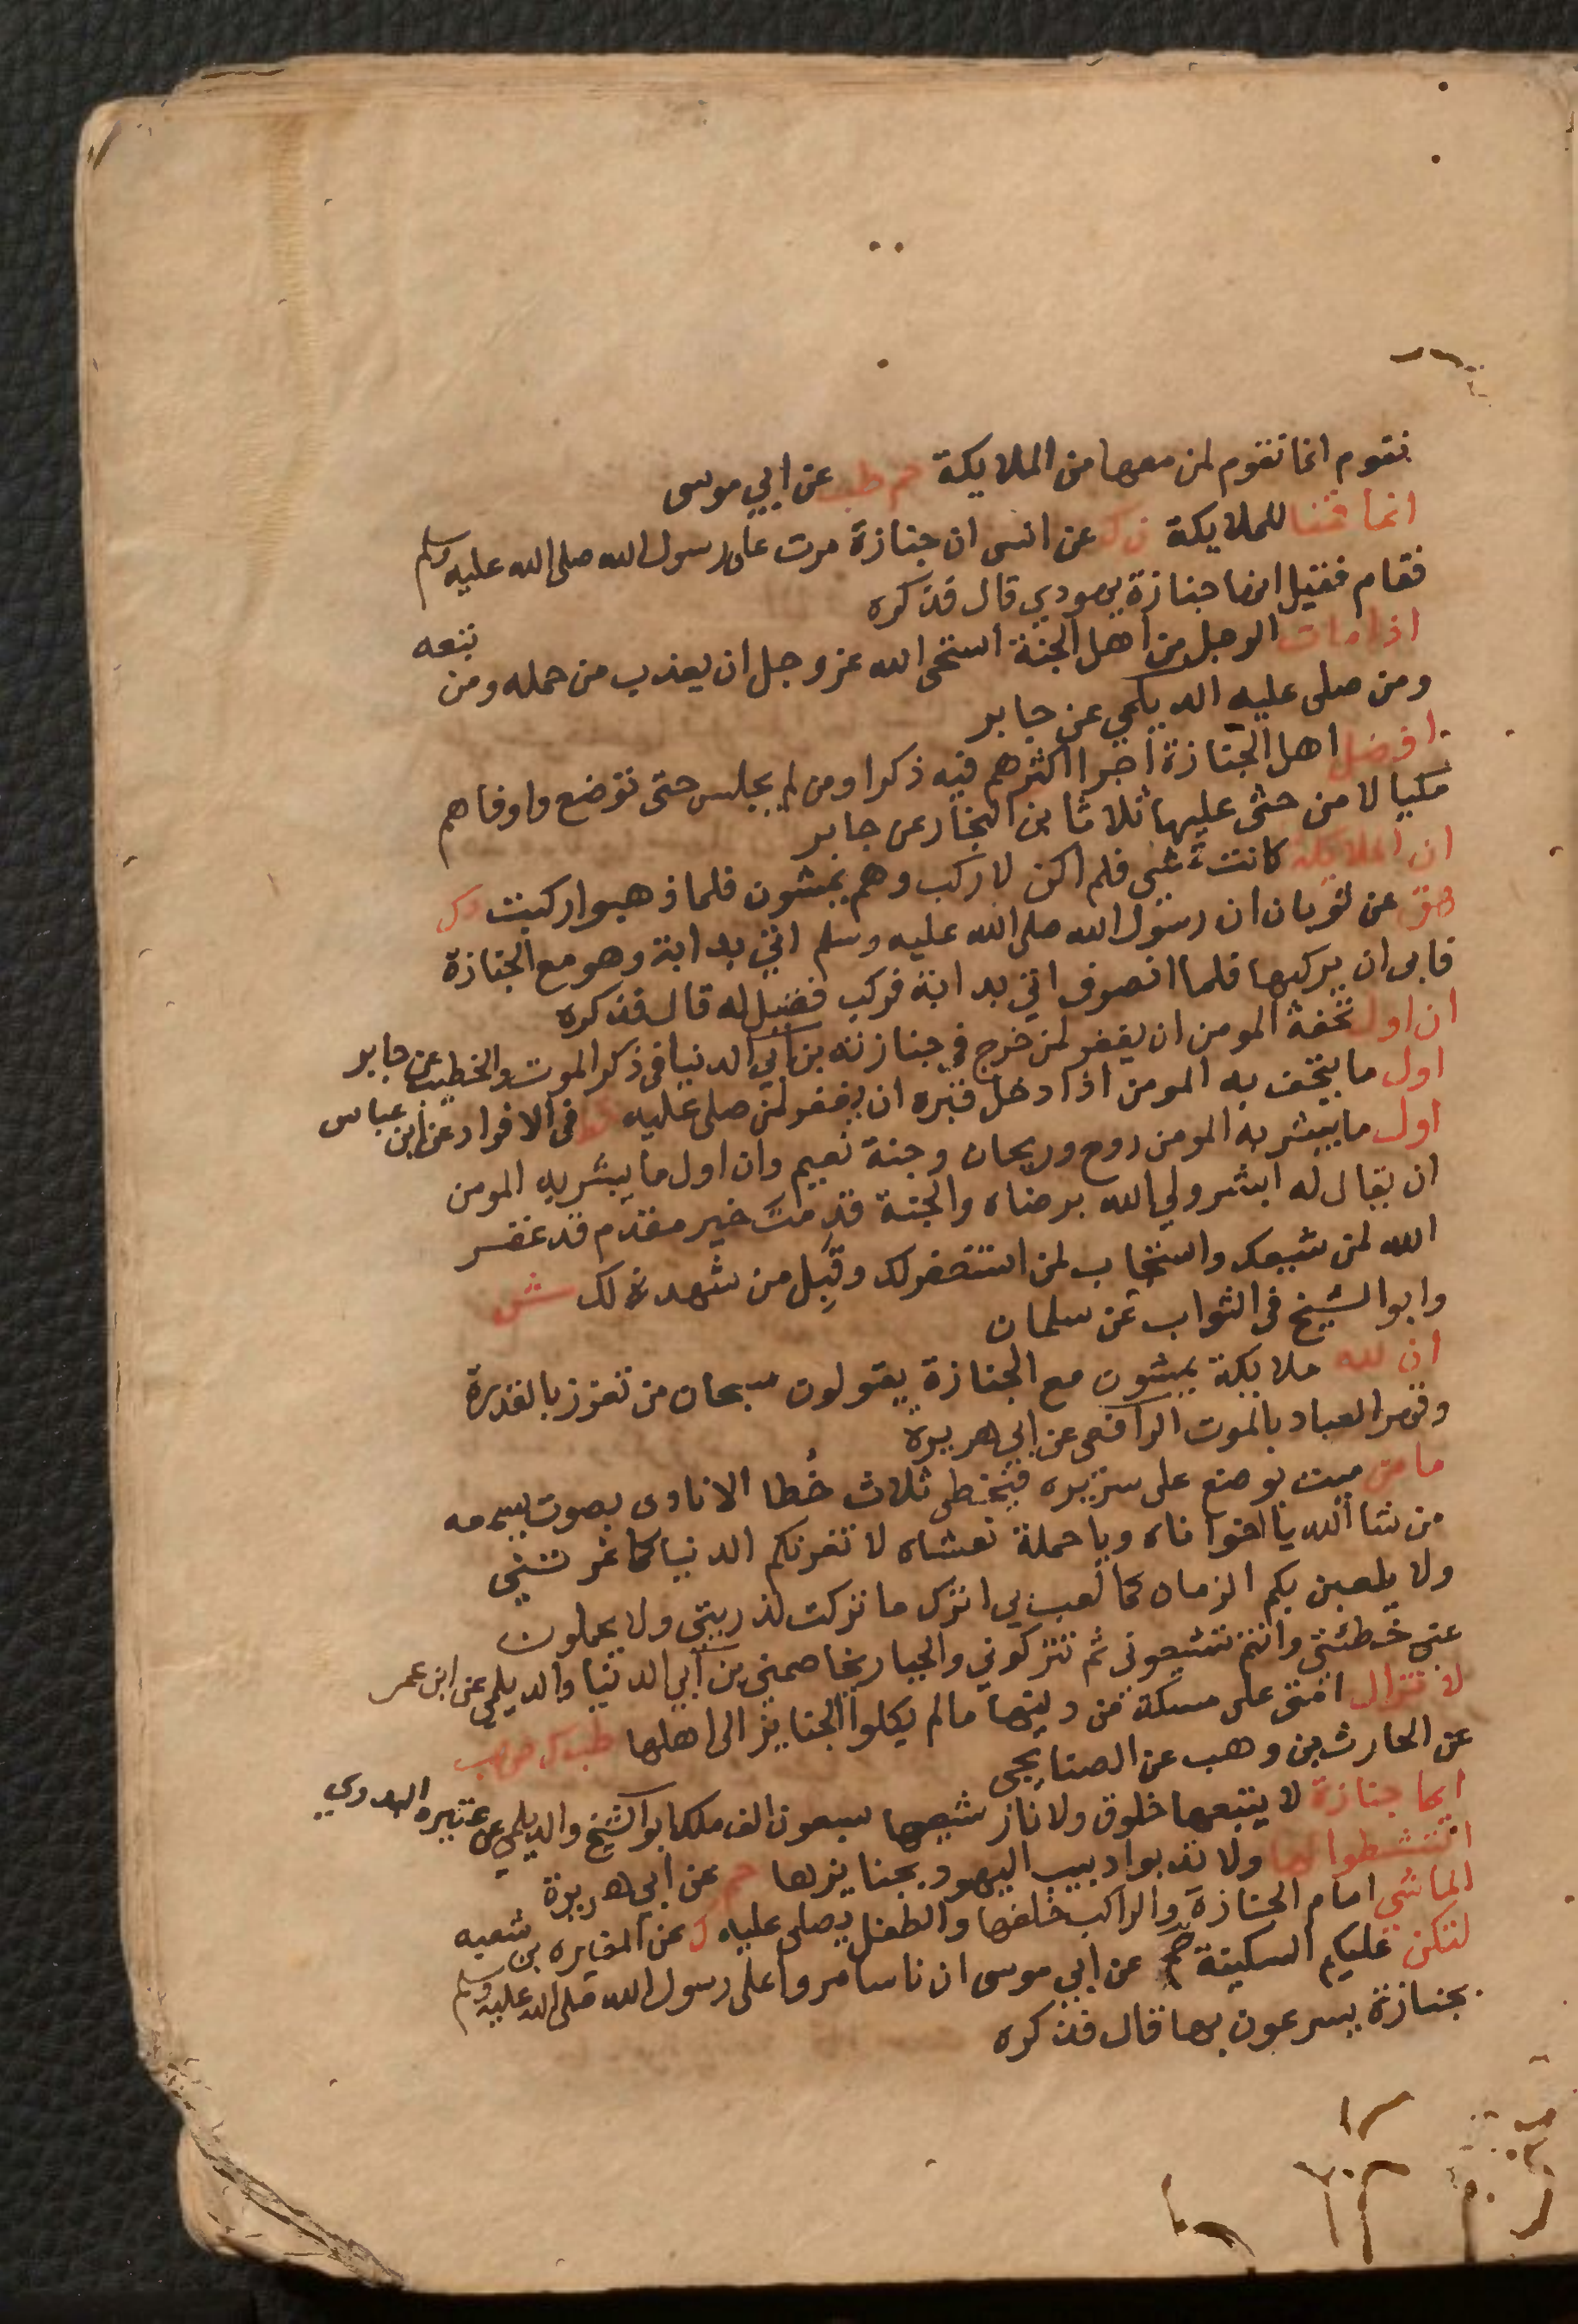 نقوم انما نقوم لمن معها من الملايكة حم طب عن ابي موسى
انما قمنا للملايكة ن ك عن انس ان جنازة مرت على رسول الله صلى الله عليه وسلم
فقام فقيل انها جنازة يهودي قال فذكره
اذا مات الرجل من اهل الجنة استحى الله عز وجل ان يعذب من حمله ومن تبعه
ومن صلى عليه الديلمي عن جابر
افضل اهل الجنازة اجرا اكثرهم فيه ذكرا ومن لم يجلس حتى توضع واوفاهم
مكيالا من حثى عليها ثلاثا بن النجار عن جابر
ان الملايكة كانت تمشي فلم اكن لاركب وهم يمشون فلما ذهبوا ركبت د ك
هق عن ثوبان ان رسول الله صلى الله عليه وسلم اتي بدابة وهو مع الجنازة
فابى ان يركبها فلما انصرف اتي بدابة فركب فقيل له قال فذكره
ان اول تحفة المومن ان يغفر لمن خرج في جنازته بن ابي الدنيا في ذكر الموت والخطيب عن جابر
اول ما يتحف به المومن اذا دخل قبره ان يغفر لمن صلى عليه قط في الافراد عن ابن عباس
اول ما يبشر به المومن روح وريحان وجنة نعيم وان اول ما يبشر به المومن
ان يقال له ابشر ولي الله برضاه والجنة قدمت خير مقدم قد غفر
الله لمن شيعك واستجاب لمن استغفر لك وقبل من شهد لك ش
وابو الشيخ في الثواب عن سلمان
ان لله ملايكة يمشون مع الجنازة يقولون سبحان من تعزز بالقدرة
وقهر العباد بالموت الرافعي عن ابي هريرة
ما من ميت يوضع على سريره فيخطى ثلاث خطا الا نادى بصوت يسمعه
من شا الله يا اخوتاه ويا حملة نعشاه لا تغرنكم الدنيا كما غرتني
ولا يلعبن بكم الزمان كما لعب بي اترك ما تركت لذريتي ولا يحملون
عني خطئتي وانتم تشيعوني ثم تتركوني والجبار يخاصمني بن ابي الدنيا والديلمي عن ابن عمر
لا تزال امتي على مسكة من دينها ما لم يكلوا الجنايز الى اهلها طب ك ص
عن الحارث بن وهب عن الصنابحي
ايما جنازة لا يتبعها خلوق ولا نار شيعها سبعون الف ملك ابو الشيخ والديلمي عن عتيره البدوي
انتشطوا لها ولا تدبوا دبيب اليهود بجنايزها حم عن ابي هريرة
الماشي امام الجنازة والراكب خلفها والطفل يصلى عليه ك عن المغيره بن شعبه
لتكن عليكم السكينة حم عن ابي موسى ان ناسا مروا على رسول الله صلى الله عليه وسلم
بجنازة يسرعون بها قال فذكره